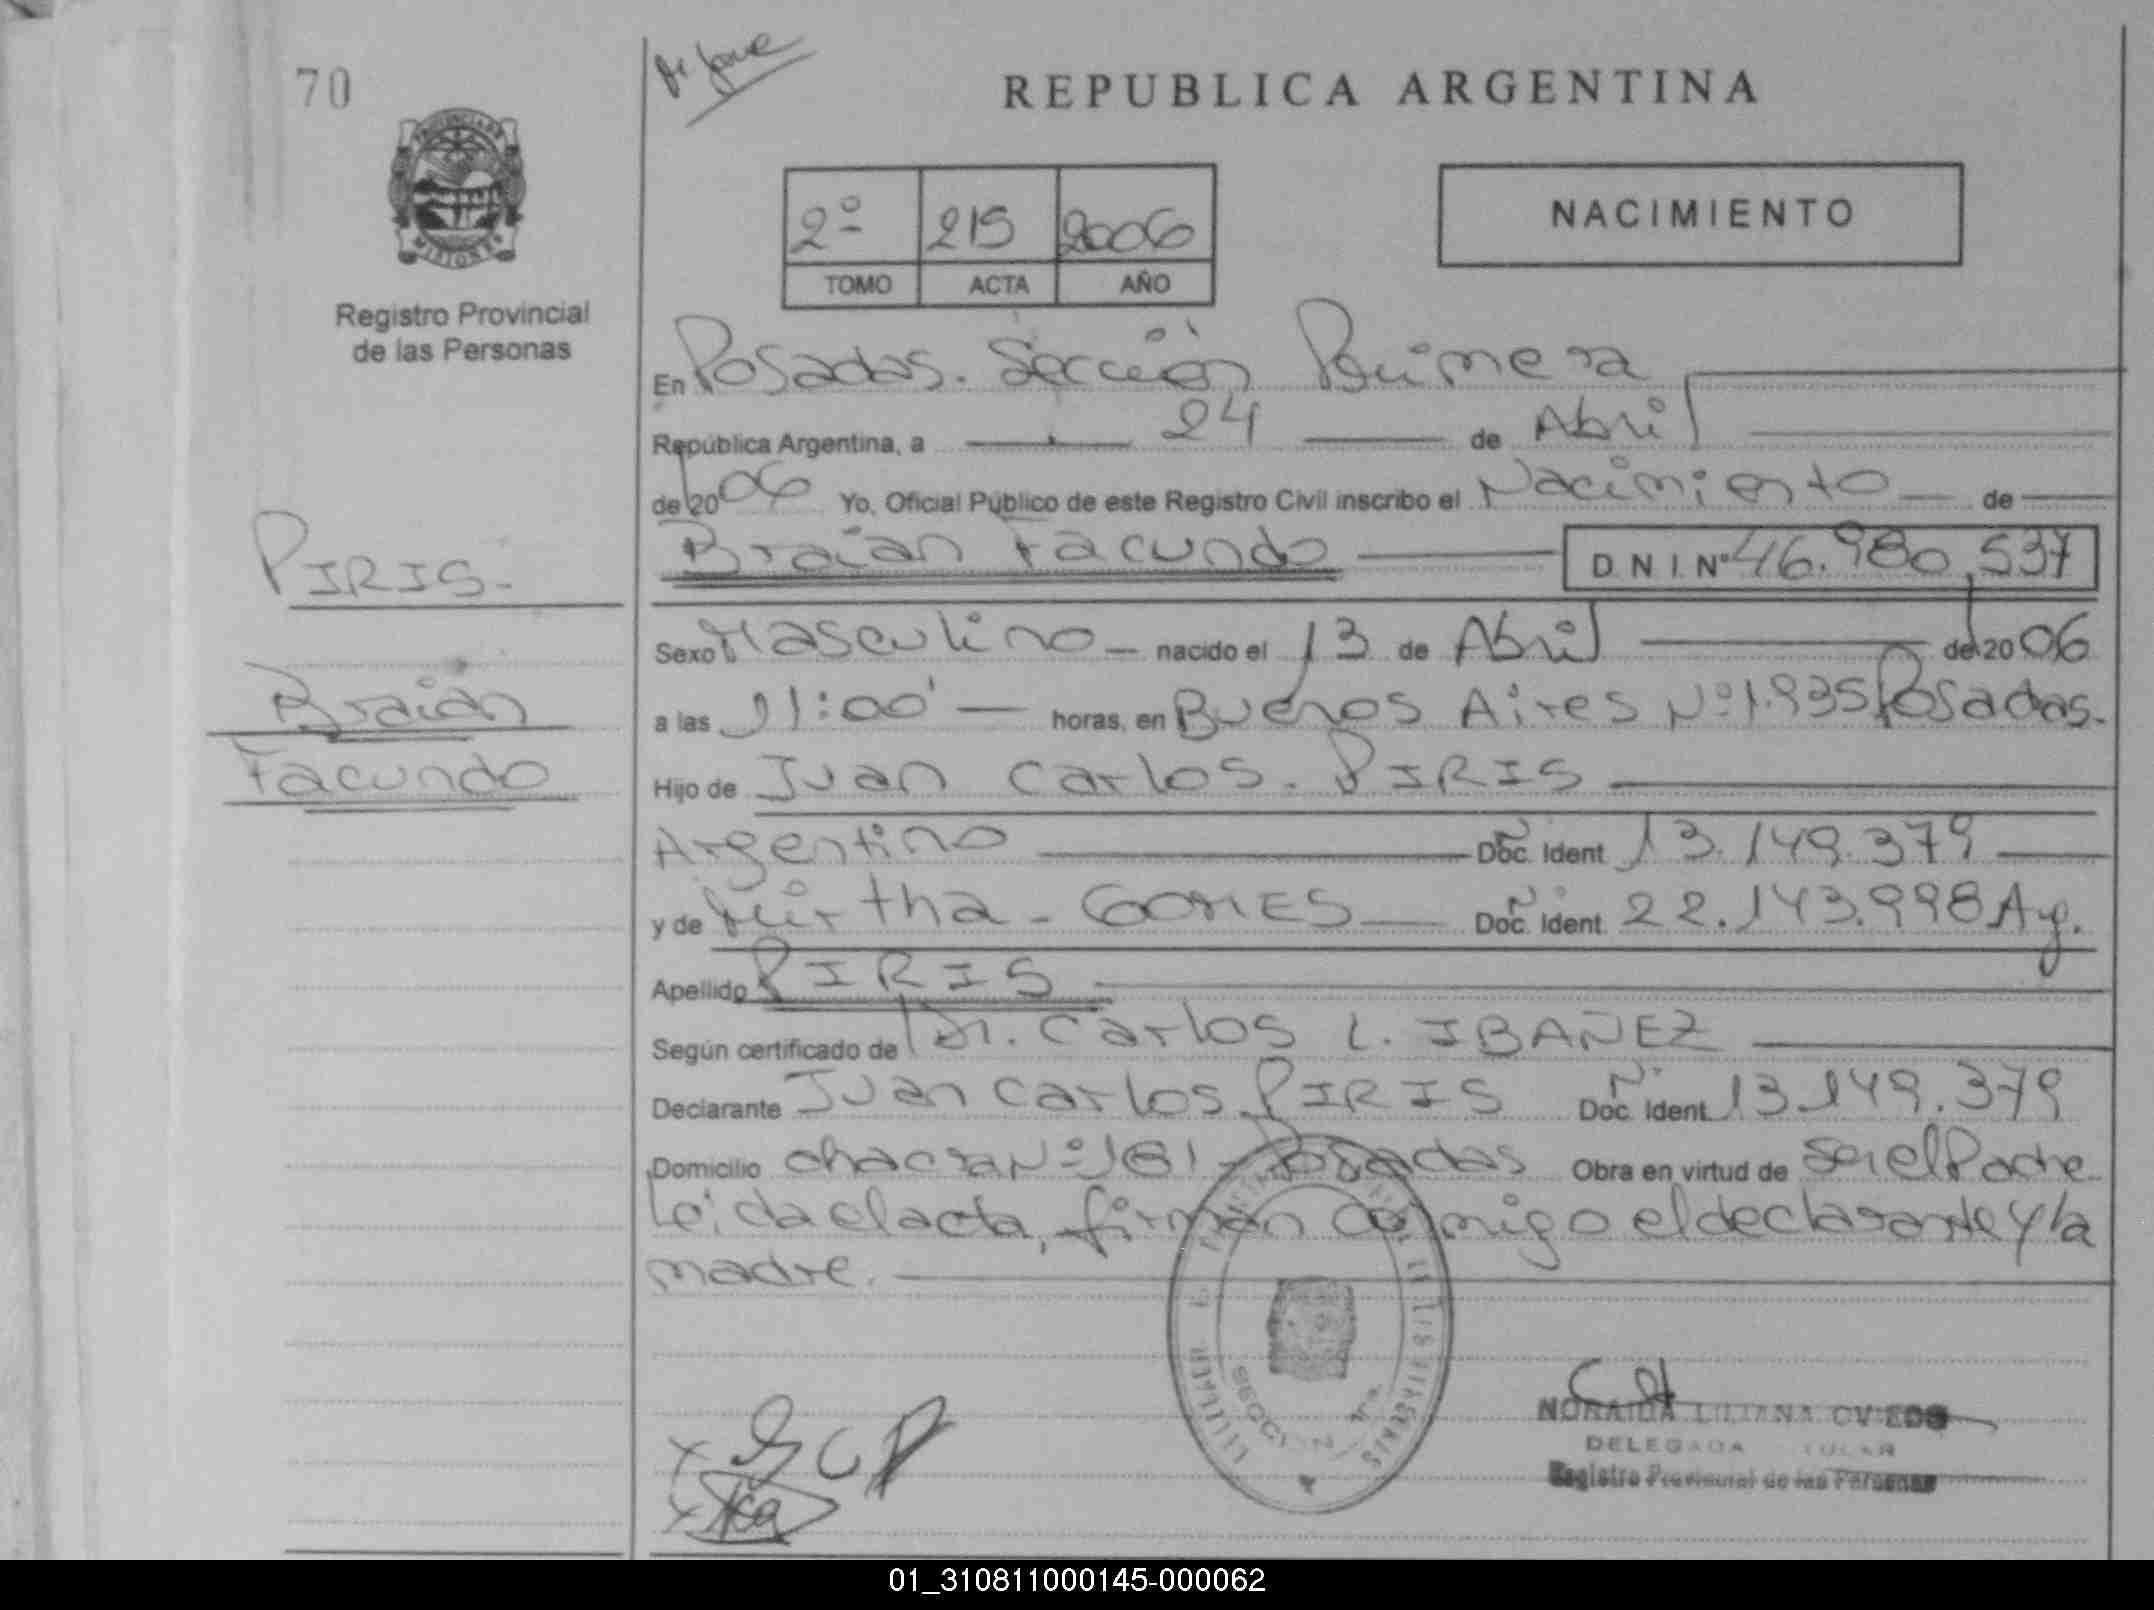 70
REPUBLICA ARGENTINA
2º 215 2006
TOMO ACTA AÑO
NACIMIENTO
PROVINCIA DE MISIONES
Registro Provincial
de las Personas
En Posadas. Sección Primera
República Argentina, a 24 de Abril
de 2006 Yo, Oficial Público de este Registro Civil inscribo el Nacimiento de
Braian Facundo D N I. Nº 46.980.537
PIRIS-
Braian
Facundo
Sexo Masculino - nacido el 13 de Abril de 2006
a las 11:00' horas, en Buenos Aires Nº 1.935 Posadas.
Hijo de Juan Carlos. PIRIS
Argentino Nº Doc. Ident 13.149.379
y de Mirtha - GOMES Nº Doc. Ident. 22.143.998 Ag.
Apellido PIRIS
Según certificado de Dr. Carlos L. IBAÑEZ
Declarante Juan Carlos PIRIS Nº Doc. Ident. 13.149.379
Domicilio chacra Nº 181 - Posadas Obra en virtud de ser el Padre
Leida el acta, firman conmigo el declarante y la
madre.
SECCION 1ra.
NORAIDA LILIANA OVIEDO
DELEGADA TITULAR
Registro Provincial de las Personas
01_310811000145-000062